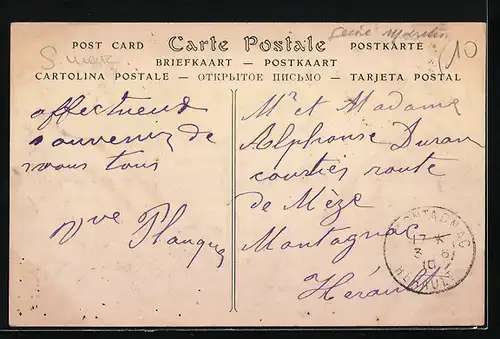 POST CARD Carte Postale POSTKARTE
BRIEFKAART - POSTKAART
CARTOLINA POSTALE - ОТКРЫТОЕ ПИСЬМО - TARJETA POSTAL
10
affectueux
souvenir de
nous tous
Vve Planque
Mr et Madame
Alphonse Duran
courtier route
de Mèze
Montagnac
Hérault
MONTAGNAC
17 *
3 8
10
HERAULT